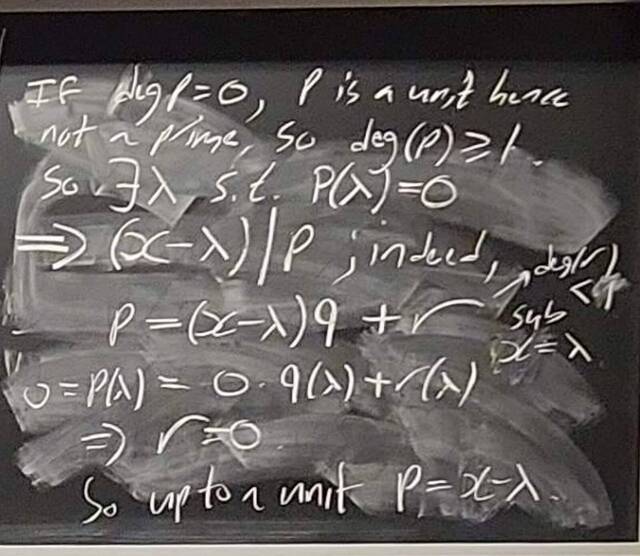 If deg p=0, p is a unit hence
not a prime, so deg(p) ≥ 1.
So ∃λ s.t. p(λ)=0
⟹ (x-λ)|p ; indeed, deg(r)
<1
p=(x-λ)q + r sub
x=λ
0=p(λ) = 0·q(λ)+r(λ)
⟹ r=0.
So up to a unit p=x-λ.